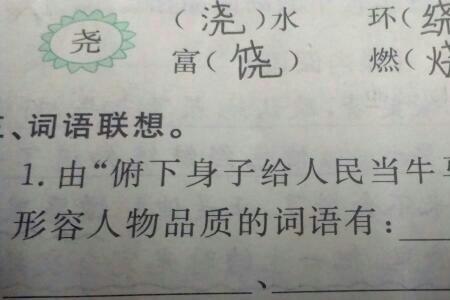 尧
（浇）水 环（绕
富（饶） 燃（烧
、词语联想。
1.由“俯下身子给人民当牛马
形容人物品质的词语有：
、